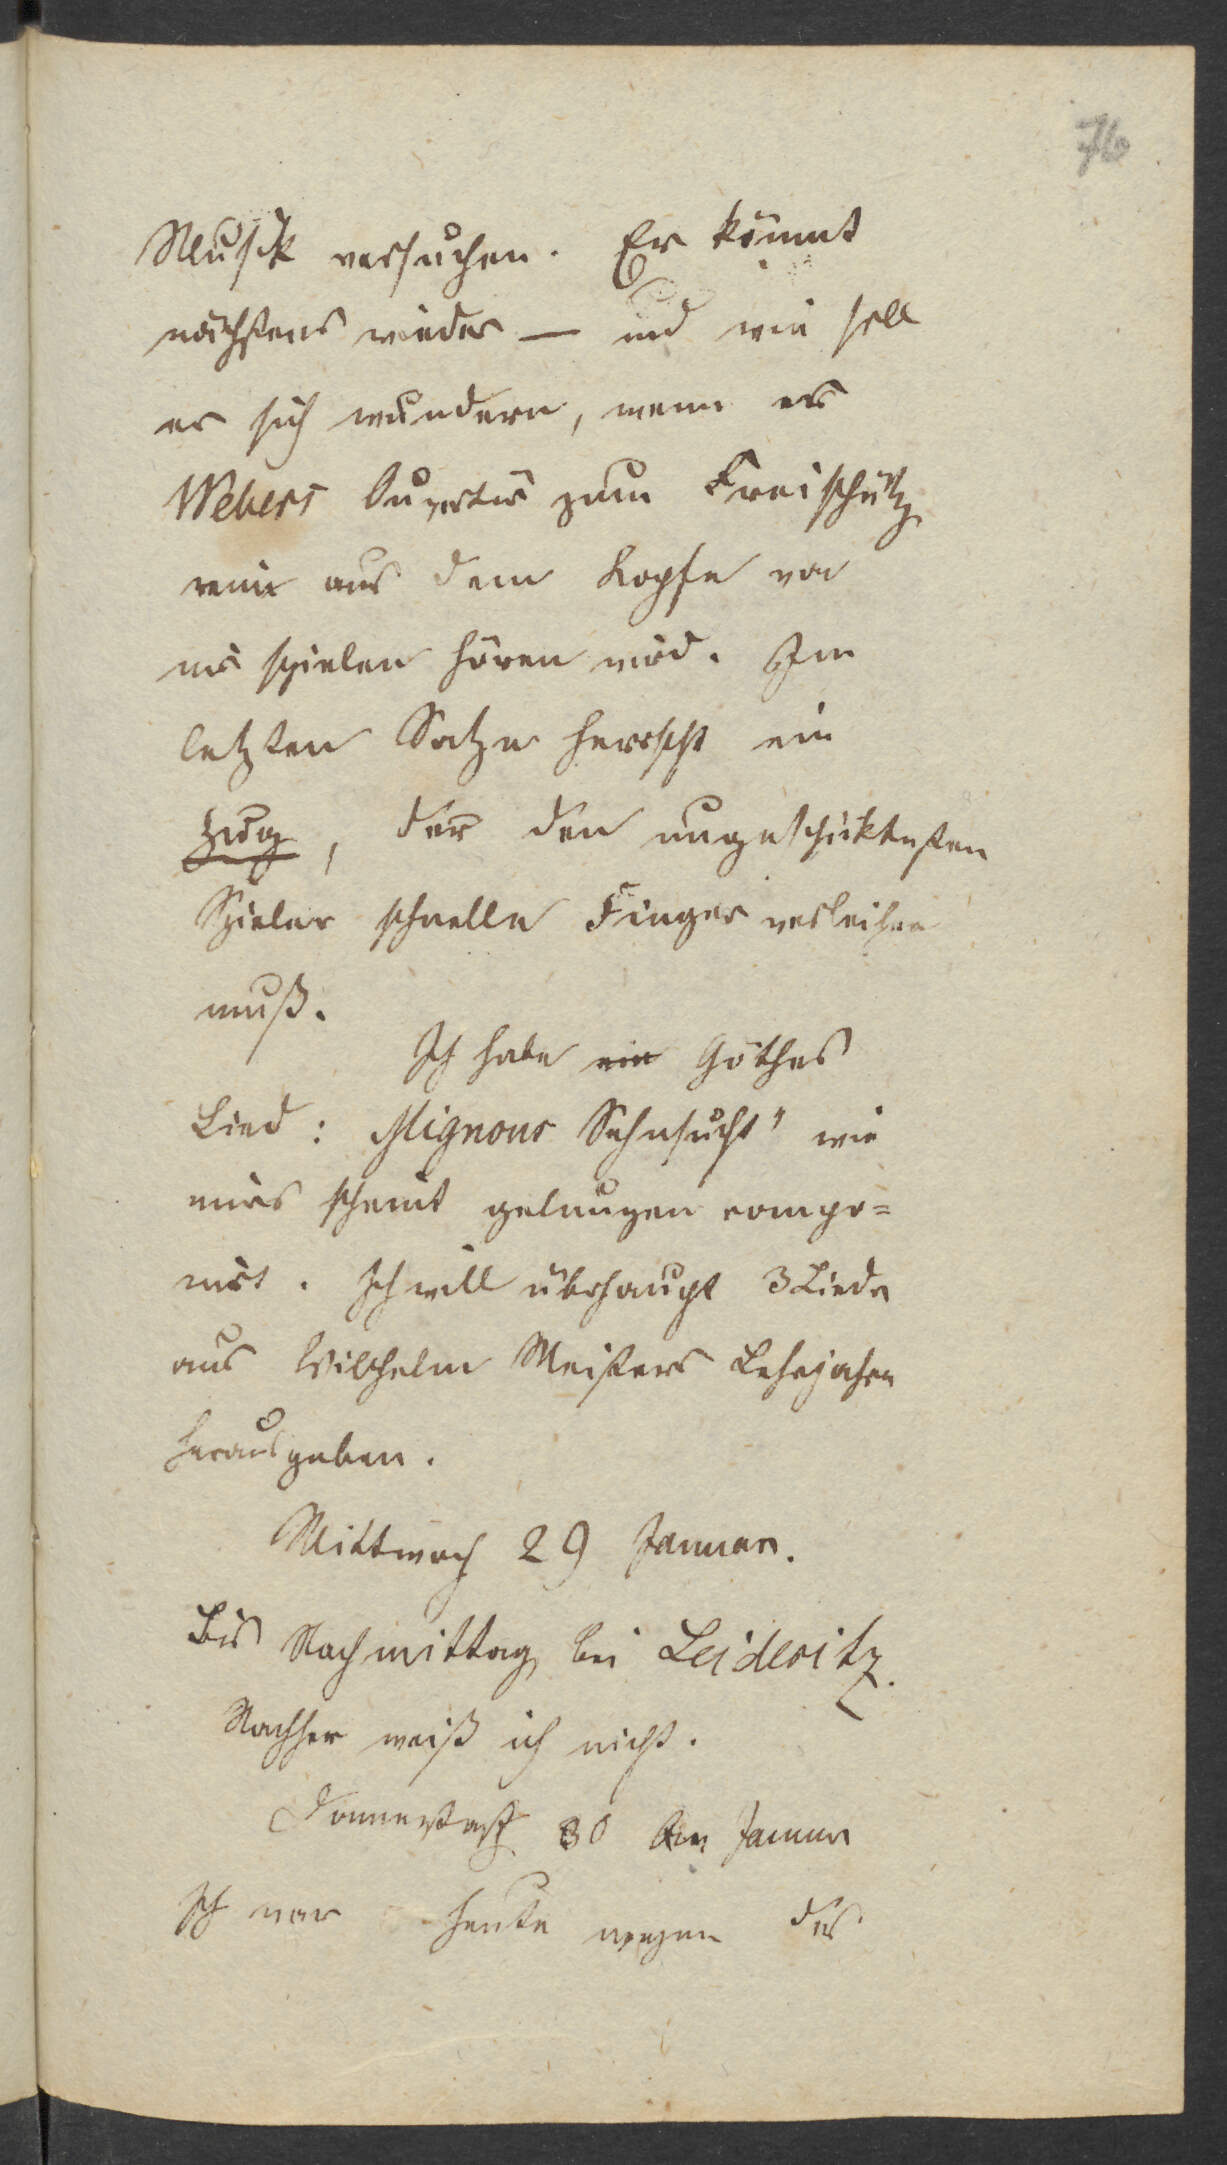 76
Musik versuchen. Er kömmt
nächstens wieder — und wie soll
er sich wundern, wenn er
Webers Ouvertür zum Freischütz
rein aus dem Kopfe von
mir spielen hören wird. Im
letzten Satze herrscht ein
Zug, der den ungeschiktesten
Spieler schnelle Finger verleihen
muß.
Ich habe ein Göthes
Lied: Mignons Sehnsucht" wie
mirs scheint gelungen compo=
nirt. Ich will überhaupt 3 Lieder
aus Wilhelm Meisters Lehrjahren
herausgeben.
Mittwoch 29 Januar.
Bis Nachmittag bei Leideritz.
Nachher weiß ich nicht.
Donnerstag 30 Januar
Ich war heute wegen des